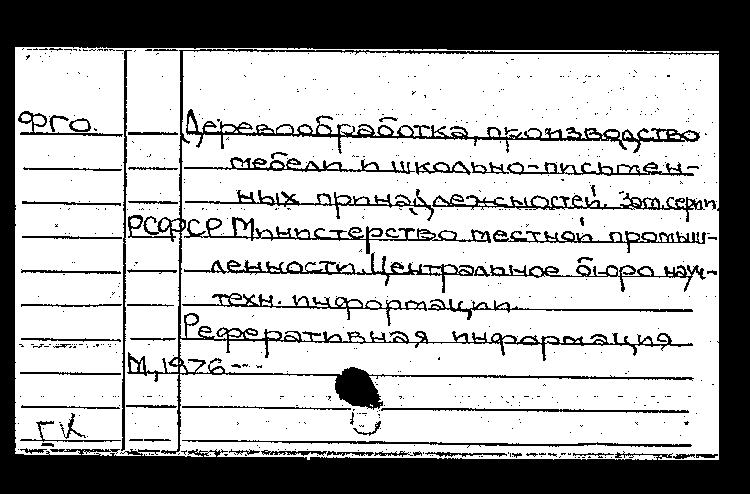 ФГО. Деревообработка, производство
мебели и школьно-письмен-
ных принадлежностей. Заг. серии.
РСФСР Министерство местной промыш-
ленности. Центральное бюро науч-
техн. информации.
Реферативная информация
М., 1976---
ГК